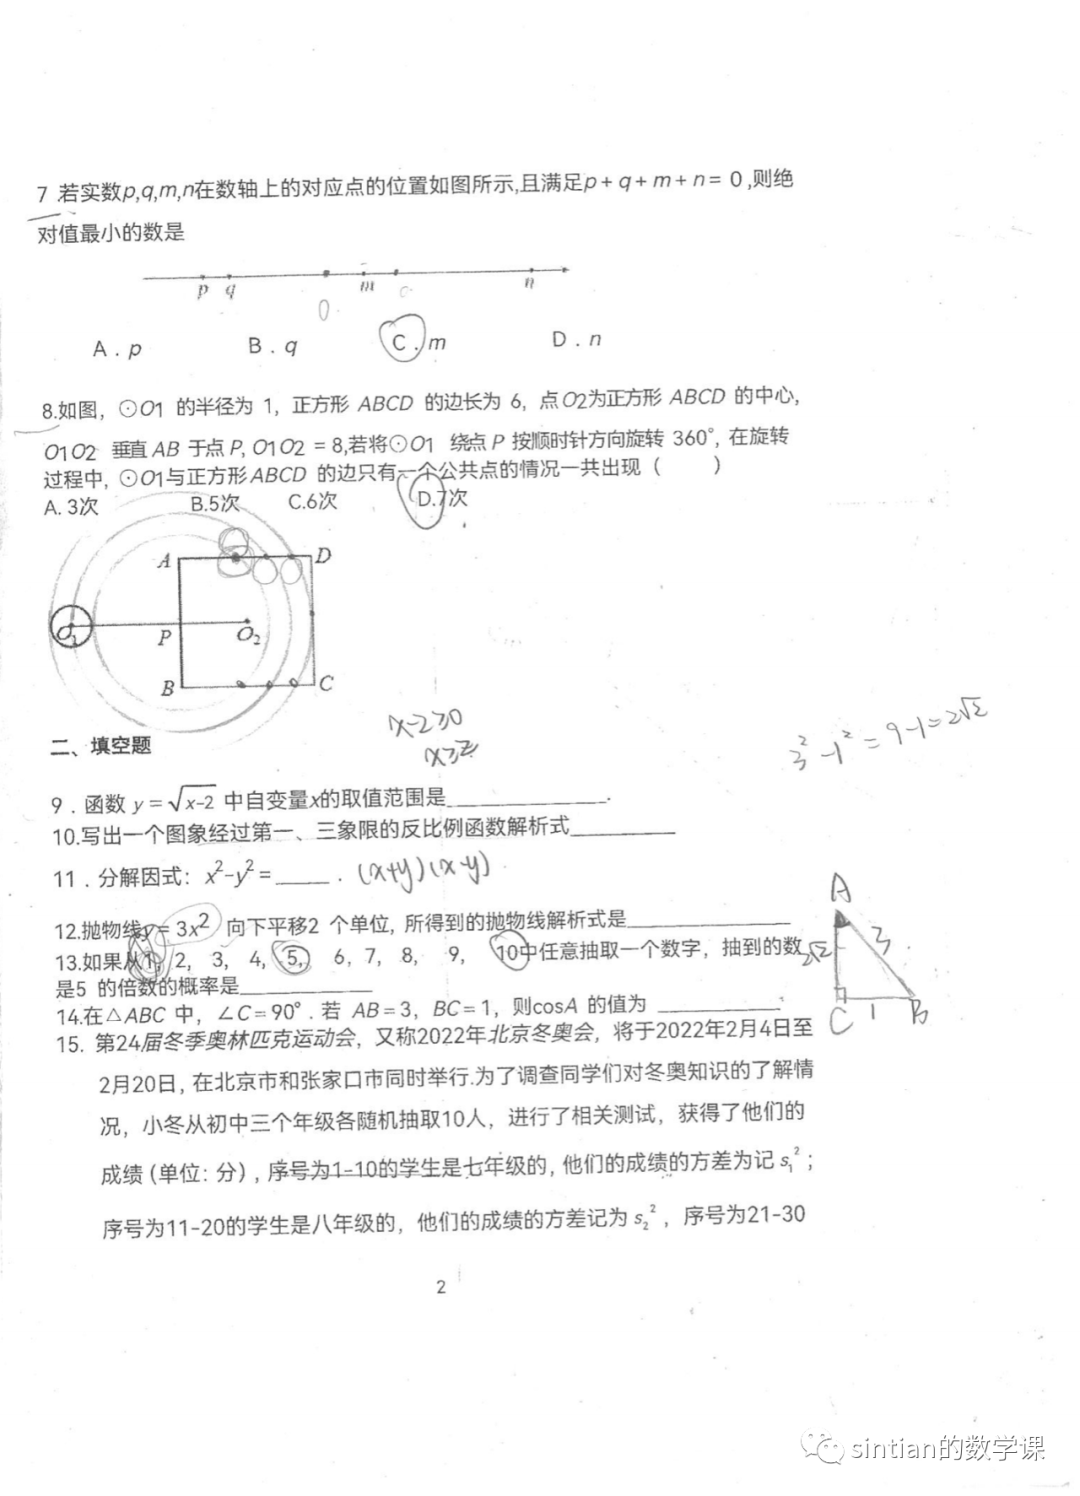 7 .若实数p,q,m,n在数轴上的对应点的位置如图所示,且满足p + q + m + n = 0 ,则绝
对值最小的数是
p q m c n
0
A . p B . q C . m D . n
8.如图，⊙O1 的半径为 1，正方形 ABCD 的边长为 6，点O2为正方形 ABCD 的中心，
O1O2 垂直 AB 于点 P, O1O2 = 8,若将⊙O1 绕点 P 按顺时针方向旋转 360°, 在旋转
过程中, ⊙O1与正方形ABCD 的边只有一个公共点的情况一共出现（ ）
A. 3次 B.5次 C.6次 D.7次
A D
O1 P O2
B C
x-2≥0
x≥2
3²-1²=9-1=2√2
二、填空题
9 . 函数 y = √x-2 中自变量x的取值范围是______________.
10.写出一个图象经过第一、三象限的反比例函数解析式__________
11 . 分解因式: x²-y² = _____ . (x+y)(x-y)
12.抛物线y= 3x² 向下平移2 个单位, 所得到的抛物线解析式是________________
13.如果从1, 2, 3, 4, 5, 6, 7, 8, 9, 10中任意抽取一个数字，抽到的数
是5 的倍数的概率是_____________
14.在△ABC 中，∠C = 90° . 若 AB = 3，BC = 1，则cosA 的值为 ____________.
A
2√2 3
C 1 B
15. 第24届冬季奥林匹克运动会，又称2022年北京冬奥会，将于2022年2月4日至
2月20日, 在北京市和张家口市同时举行.为了调查同学们对冬奥知识的了解情
况，小冬从初中三个年级各随机抽取10人，进行了相关测试，获得了他们的
成绩 (单位: 分) , 序号为1-10的学生是七年级的, 他们的成绩的方差为记 s₁² ;
序号为11-20的学生是八年级的，他们的成绩的方差记为 s₂² ，序号为21-30
2
sintian的数学课